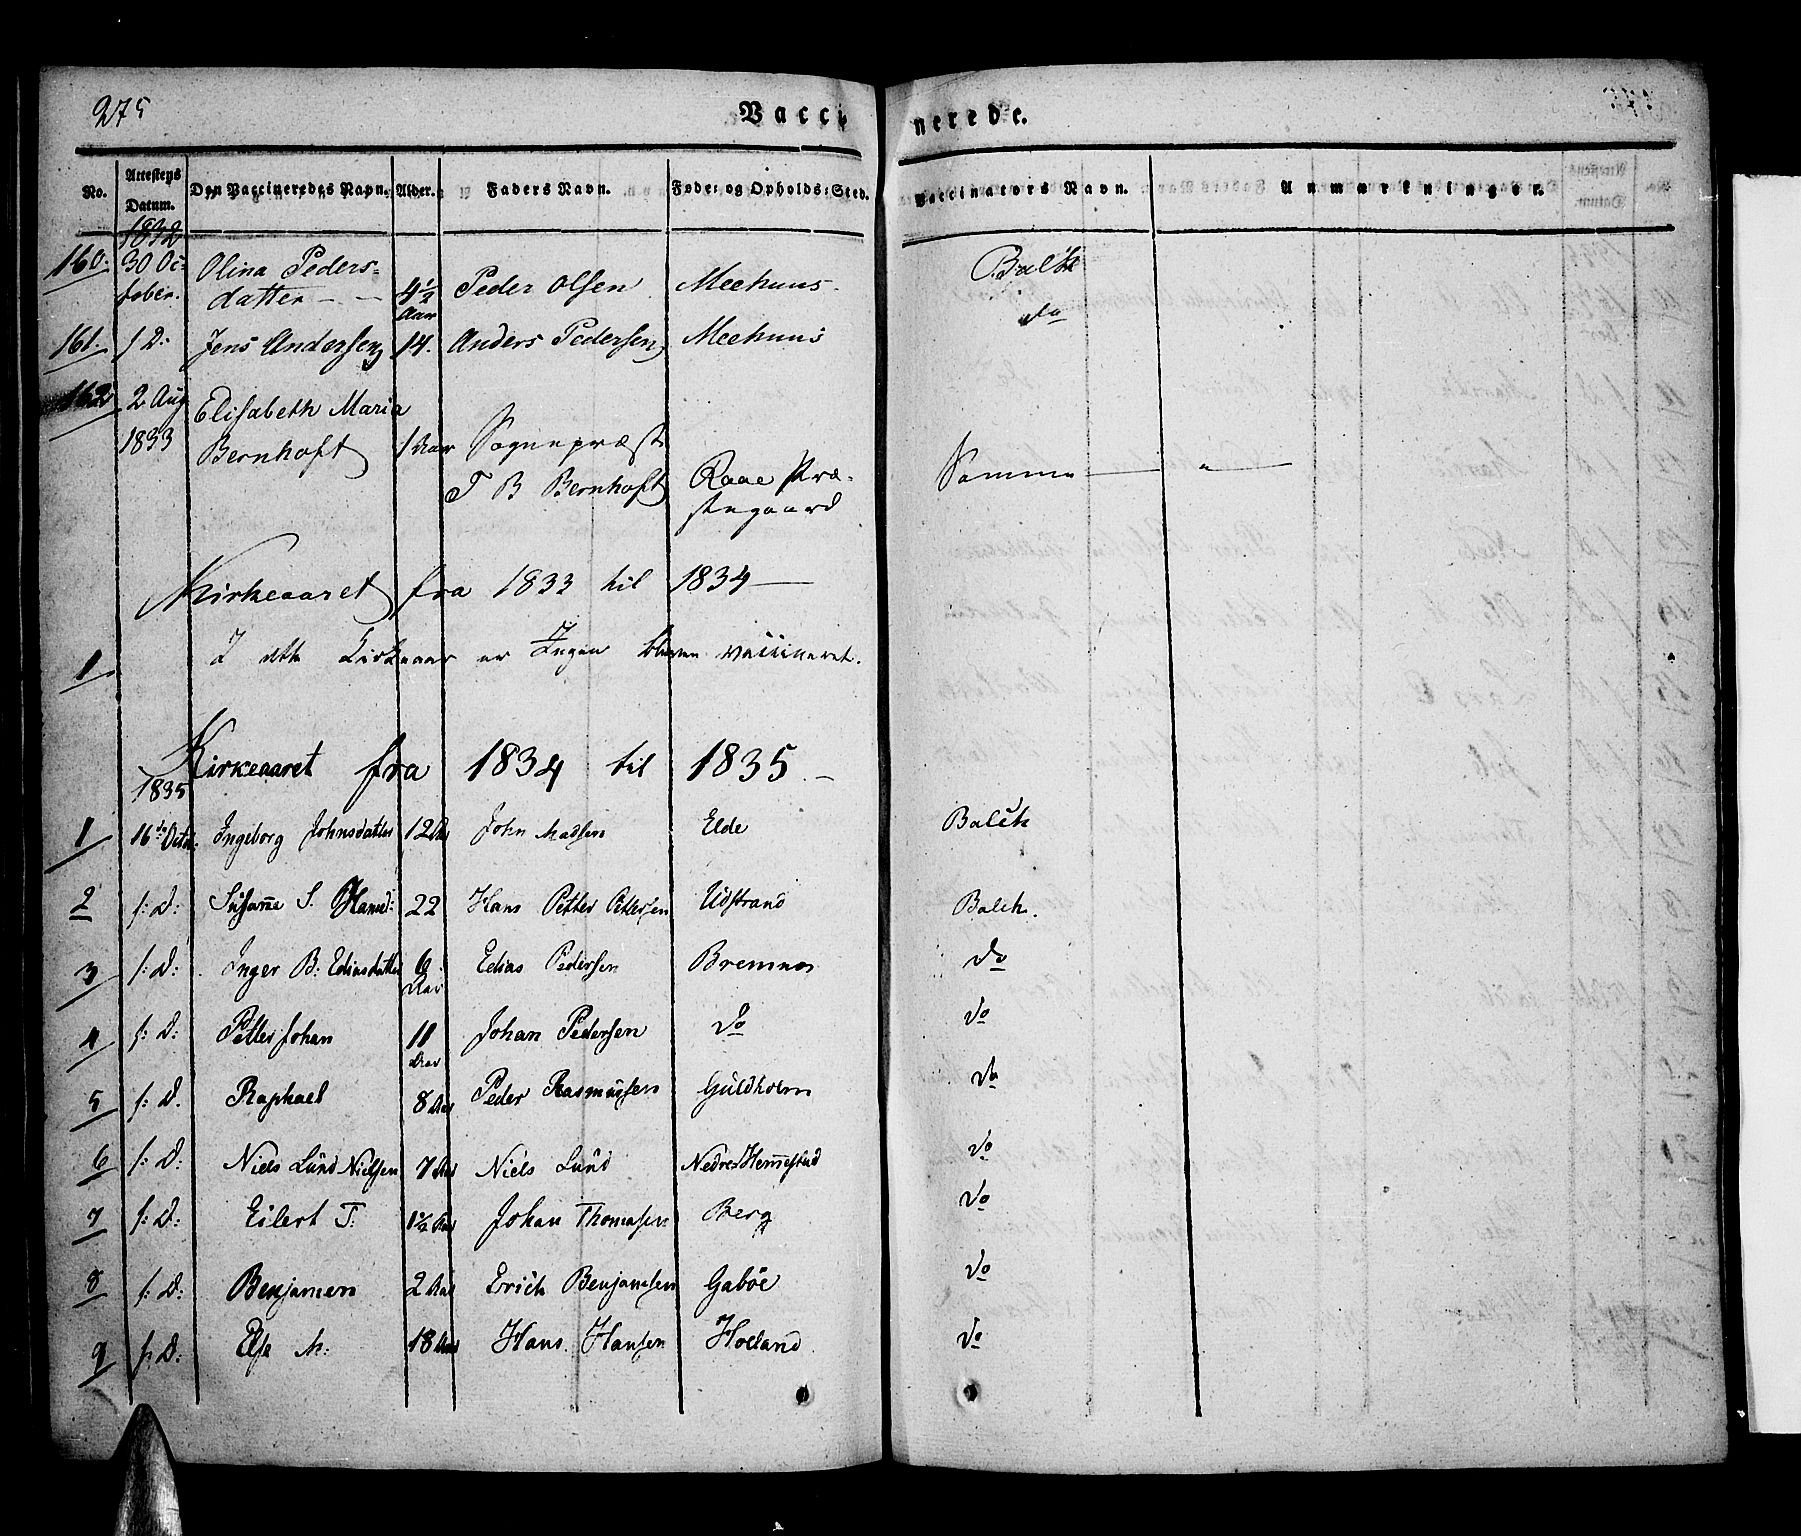 275
Vaccinerede.
No. Attestens Datum. Den Vaccineredes Navn. Alder. Faders Navn. Føde- og Opholds-Sted. Vaccinators Navn. Anmærkninger.
1832
160. 30 Oc- Olina Peders- Balck
tober. datter - - 4½ Aar Peder Olsen Meehuus. do
161. s D: Jens Andersen 14. Anders Pedersen Meehuus
162 2 Aug Elisabeth Maria
1833 Bernhoft 1 Aar Sognepræst Samme — " —
T B Bernhoft Raae Præ-
stegaard
Kirkeaaret fra 1833 til 1834 —
1 I dette Kirkeaar er Ingen bleven vaccineret.
Kirkeaaret fra 1834 til 1835 -
1835
1 16de Octb: Ingeborg Johnsdatter 12 Aar John Madsen Elde Balck
2 s: D: Susanna S. Hansd: 22 Hans Petter Petersen Udstrand Balck.
3 s: D: Inger B: Ediasdatter 6 Aar Edias Pedersen Bremnes do
4 s: D: Petter Johan 11 Aar Johan Pedersen do do
5 s: D. Raphael 8 Aar Peder Rasmussen Guldholm do
6 s: D: Niels Lund Nielsen 7 Aar Niels Lund Nedre Hemestad do
7 s: D: Eilert T: 1½ Aar Johan Thomasen Berg do
8 s: D: Benjamen 2 Aar Erich Benjamsen Gabøe do
9 s: D: Else M: 18 Aar Hans Hansen Holland do